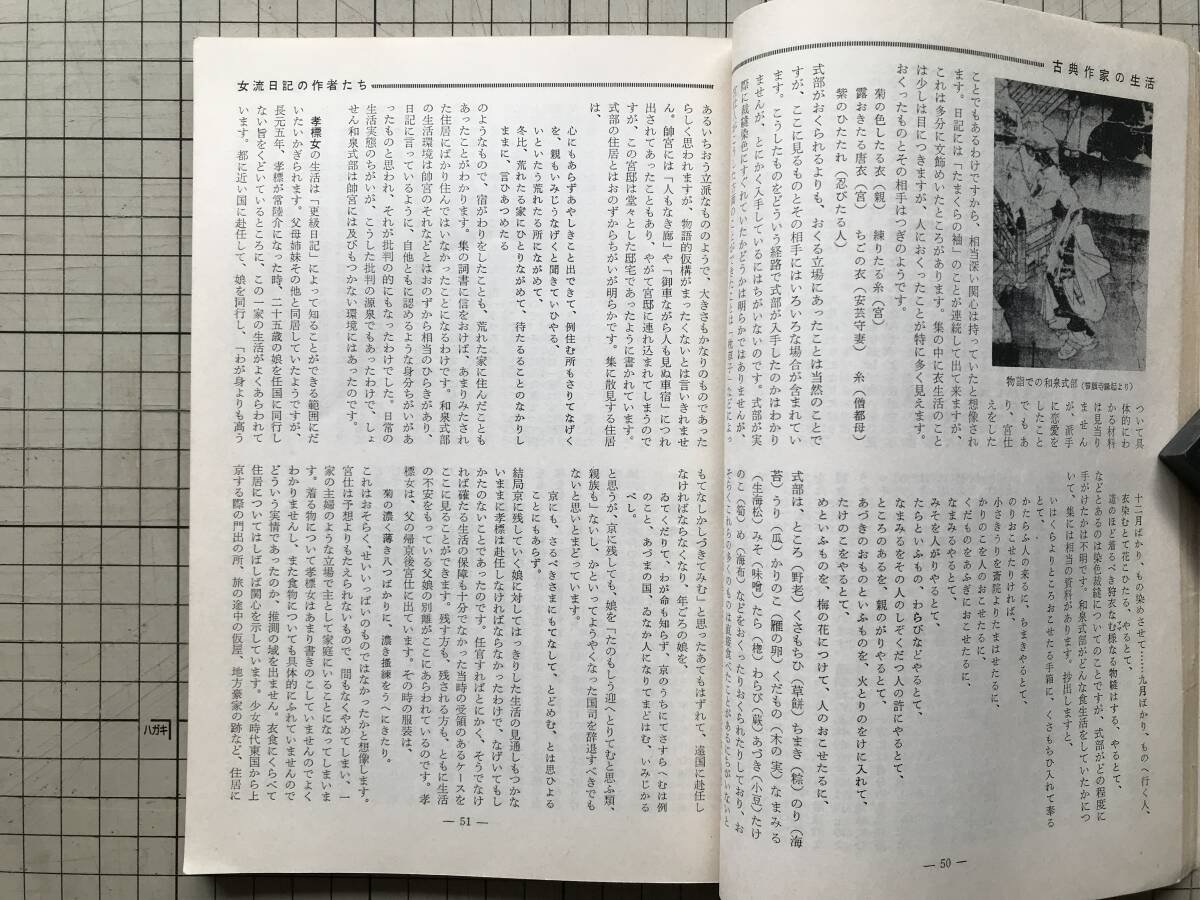 古典作家の生活
物詣での和泉式部（誓願寺縁起より）
ことでもあるわけですから、相当深い関心は持っていたと想像され
ます。日記には「たまくらの袖」のことが連続して出て来ますが、
これは多分に文飾めいたところがあります。集の中に衣生活のこと
は少しは目につきますが、人におくったことが特に多く見えます。
おくったものとその相手はつぎのようです。
菊の色したる衣（親）　練りたる糸（宮）
露おきたる唐衣（宮）　ちごの衣（安芸守妻）　糸（僧都母）
紫のひたたれ（忍びたる人）
式部がおくられるよりも、おくる立場にあったことは当然のことで
すが、ここに見るものとその相手にはいろいろな場合が含まれてい
ます。こうしたものをどういう経路で式部が入手したのかはわかり
ませんが、とにかく入手しているにはちがいないのです。式部が実
際に裁縫染色にすぐれていたかどうかは明らかではありませんが、
ついて具
体的にわ
かる材料
は見当り
ません
が、派手
に恋愛を
したこと
でもあ
り、宮仕
えをした
十二月ばかり、もの染めさせて……九月ばかり、ものへ行く人、
衣染むとて花こひたる、やるとて、
道のほど着るべき狩衣なむ様なる物縫はする、やるとて、
などとあるのは染色裁縫についてのことですが、式部がどの程度に
手がけたかは不明です。和泉式部がどんな食生活をしていたかにつ
いて、集には相当の資料があります。抄出しますと、
いはくらよりところおこせたる手箱に、くさもちひ入れて奉る
とて、
かたらふ人の来るに、ちまきやるとて、
のりおこせたりければ、
小さきうりを斎院よりたまはせたるに、
かりのこを人のおこせたるに、
くだものをあふぎにおこせたるに、
なまみるやるとて、
みそを人がりやるとて、
たらといふもの、わらびなどやるとて、
なまみるをその人のしぞくだつ人の許にやるとて、
ところのあるを、親のがりやるとて
あづきのおものといふものを、火とりのをけに入れて、
たけのこをやるとて、
めといふものを、梅の花につけて、人のおこせたるに、
式部は、ところ（野老）くさもちひ（草餅）ちまき（粽）のり（海
苔）うり（瓜）かりのこ（雁の卵）くだもの（木の実）なまみる
（生海松）みそ（味噌）たら（楤）わらび（蕨）あづき（小豆）たけ
のこ（筍）め（海布）などをおくったりおくられたりしており、お
— 50 —
女流日記の作者たち
あるいちおう立派なもののようで、大きさもかなりのものであった
らしく思われますが、物語的仮構がまったくないとは言いきれませ
ん。帥宮には「人もなき廊」や「御車ながら人も見ぬ車宿」につれ
出されてあったこともあり、やがて宮邸に連れ込まれてしまうので
すが、この宮邸は堂々とした邸宅であったように書かれています。
式部の住居とはおのずからちがいが明らかです。集に散見する住居
は、
心にもあらずあやしきこと出できて、例住む所もさりてなげく
を、親もいみじうなげくと聞きていひやる、
いといたう荒れたる所にながめて、
冬比、荒れたる家にひとりながめて、待たるることのなかりし
ままに、言ひあつめたる
のようなもので、宿がわりをしたことも、荒れた家に住んだことも
あったことがわかります。集の詞書に信をおけば、あまりみたされ
た住居にばかり住んではいなかったことになるわけです。和泉式部
の生活環境は帥宮のそれなどとはおのずから相当のひらきがあり、
日記に言っているように、自他ともに認めるような身分ちがいがあ
ったものと思われ、それが批判の的にもなったわけでした。日常の
生活実態のちがいが、こうした批判の源泉でもあったわけで、しょ
せん和泉式部は帥宮には及びもつかない環境にはあったのです。
孝標女の生活は「更級日記」によって知ることができる範囲にだ
いたいかぎられます。父母姉妹その他と同居していたようですが、
長元五年、孝標が常陸介になった時、二十五歳の娘を任国に同行し
ない旨をくどいているところに、この一家の生活がよくあらわれて
います。都に近い国に赴任して、娘を同行し、「わが身よりも高う
もてなしかしづきてみむ」と思ったあてもはずれて、遠国に赴任し
なければならなくなり、年ごろの娘を、
ゐてくだりて、わが命も知らず、京のうちにてさすらへむは例
のこと、あづまの国、ゐなか人になりてまどはむ、いみじかる
べし。
と思うが、京に残しても、娘を「たのもしう迎へとりてむと思ふ類、
親族も」ないし、かといってようやくなった国司を辞退すべきでも
ないと思いとまどっています。
京にも、さるべきさまにもてなして、とどめむ、とは思ひよる
ことにもあらず。
結局京に残していく娘に対してはっきりした生活の見通しもつかな
いままに孝標は赴任しなければならなかったわけで、なげいてもし
かたのないことであったのです。任官すればとにかく、そうでなけ
れば確たる生活の保障も十分でなかった当時の受領のあるケースを
ここに見ることができます。残す方も、残される方も、ともに生活
の不安をもっている父娘の別離がここにあらわれているのです。孝
標女は、父の帰京後宮仕に出ています。その時の服装は、
菊の濃く薄き八つばかりに、濃き掻練をうへにきたり。
これはおそらく、せいいっぱいのものではなかったかと想像します。
宮仕は予想よりもたえられないもので、間もなくやめてしまい、一
家の主婦のような立場で主として家庭にいることになってしまいま
す。着る物について孝標女はあまり書きのこしていませんのでよく
わかりませんし、また食物についても具体的にふれていませんので
どういう実情であったのか、推測の域を出ません。衣食にくらべて
住居についてはしばしば関心を示しています。少女時代東国から上
京する際の門出の所、旅の途中の仮屋、地方豪家の跡など、住居に
— 51 —
ハガキ